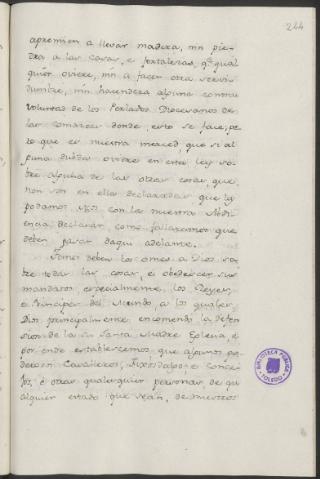 244
apremien a llevar madera, nin pie-
dra a las casas, e fortalezas, qe qual
quier oviere, nin a facer otra servi-
dumbre, nin hacendera alguna contra
voluntad de los Perlados Diocesanos de
las comarcas donde esto se face; pe-
ro que es nuestra merced, que si al
guna dubda oviere en esta ley so-
bre alguna de las otras cosas, que
non son en ella declaradas que lo
podamos Nos con la nuestra Abdi-
encia declarar, como fallaremos que
deben pasar daqui adelante.
Temer deben los omes a Dios so-
bre todas las cosas, e obedescer sus
mandados especialmente los Reyes,
e Principes del Mundo, a los quales
Dios principalmente encomendó la defen
sion de la su Santa Madre Eglesia, e
por ende establecemos, que algunos po-
derosos Cavalleros, Fixosdalgo, e Conce-
jos, e otras qualesquier personas, de qu
alquier estado que sean, de nuestros
BIBLIOTECA PUBLICA
TOLEDO